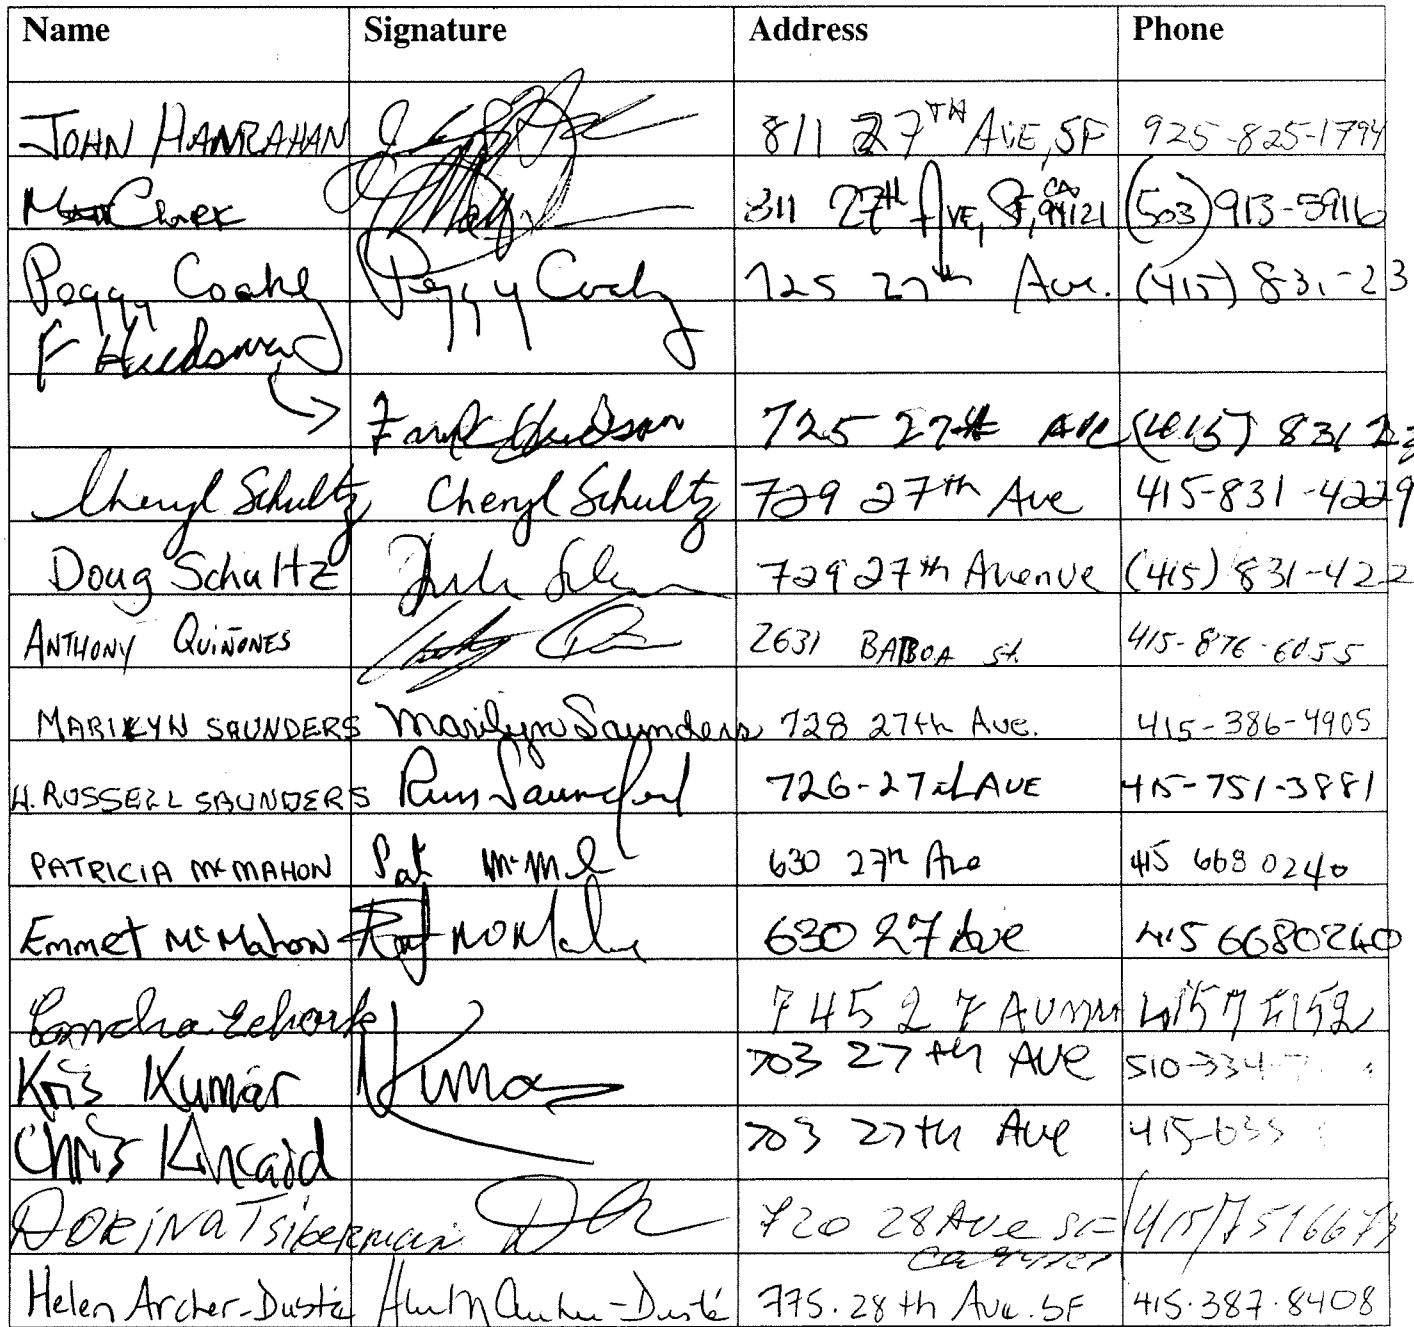 Name Signature Address Phone
JOHN HANRAHAN 811 27TH AVE, SF 925-825-1794
811 27th AVE, SF, CA 94121 (503) 913-5916
Peggy Coakley Peggy 725 27th Ave. (415) 831-23
F Hudson
Hudson 725 27th Ave (415) 831 23
Cheryl Schultz Cheryl Schultz 729 27th Ave 415-831-4229
Doug Schultz 729 27th Avenue (415) 831-422
ANTHONY QUIÑONES 2631 BALBOA St. 415-876-6055
MARILYN SAUNDERS Marilyn Saunders 728 27th Ave. 415-386-4905
H. RUSSELL SAUNDERS Russ Saunders 726-27th AVE 415-751-3881
PATRICIA McMAHON Pat 630 27th Ave 415 668 0240
Emmet McMahon 630 27 Ave 415 6680240
745 27
Kris Kumar Kumar 703 27th AVE 510-334-
Chris Kincaid 703 27th Ave 415-
DORINA Tsiperman 720 28 Ave SF (415) 7516673
Helen Archer-Dusté Helen Archer-Dusté 775. 28th Ave. SF 415.387.8408